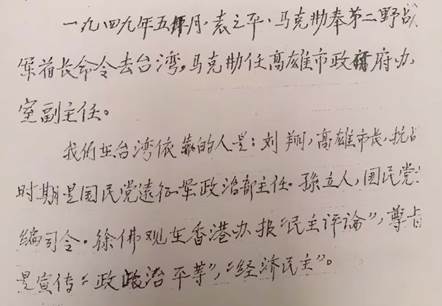 一九四九年五月，袁之平，马克勋奉第二野战
军首长命令去台湾，马克勋任高雄市政府办
室副主任。
我们在台湾依靠的人是：刘翔，高雄市长，抗战
时期是国民党远征军政治部主任．孫立人，国民党
编司令．徐佛观在香港办报“民主评论”，
是宣传“政治平等”，“经济民主”。